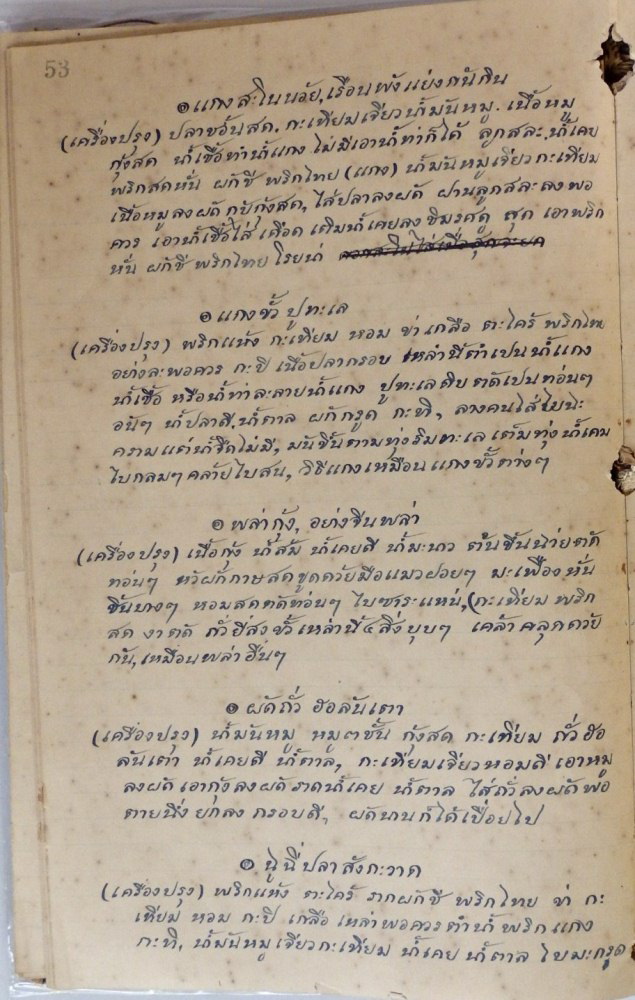 53
๏ แกงสะโนนวัย, เรือนพังแย่งกันกิน
(เครื่องปรุง) ปลาช่อนสด, กะเทียมเจียวน้ำมันหมู, เนื้อหมู
กุ้งสด น้ำเชื้อทำน้ำแกง ไม่มีเอาน้ำท่าก็ได้ ลูกสละ น้ำเคย
พริกสดหั่น ผักชี พริกไทย (แกง) น้ำมันหมูเจียวกะเทียม
เนื้อหมูลงผัด กับกุ้งสด, ใส่ปลาลงผัด ฝานลูกสละลงพอ
ควร เอาน้ำเชื้อใส่ เดือด เติมน้ำเคยลงชิมรสดู สุก เอาพริก
หั่น ผักชี พริกไทย โรยน่า
๏ แกงขั้ว ปูทะเล
(เครื่องปรุง) พริกแห้ง กะเทียม หอม ข่า เกลือ ตะไคร้ พริกไทย
อย่างละพอควร กะปิ เนื้อปลากรอบ เหล่านี้ตำเปนน้ำแกง
น้ำเชื้อ หรือน้ำท่าละลายน้ำแกง ปูทะเลดิบ ตัดเปนท่อนๆ
อันๆ น้ำปลาดี, น้ำตาล ผักกรูด กะทิ, ลางคนใส่ใบชะ
ครามแต่น้ำจืดไม่มี, มันขึ้นตามทุ่งริมทะเล เต็มทุ่งน้ำเคม
ใบกลมๆ คล้ายใบสน, วิธีแกงเหมือนแกงขั้วต่างๆ
๏ พล่ากุ้ง, อย่างจีนพล่า
(เครื่องปรุง) เนื้อกุ้ง น้ำส้ม น้ำเคยดี น้ำมะนาว ต้นขึ้นน่ายตัด
ท่อนๆ หัวผักกาษสดขูดด้วยมือแมวฝอยๆ มะเฟืองหั่น
ชิ้นบางๆ หอมสดตัดท่อนๆ ใบสะระแหน่, (กะเทียม พริก
สด งาตัด ถั่วยีสงขั้ว เหล่านี้ ๔ สิ่ง บุบๆ เคล้าคลุกด้วย
กัน, เหมือนพล่าอื่นๆ
๏ ผัดถั่ว ฮอลันเตา
(เครื่องปรุง) น้ำมันหมู หมู ๓ ชั้น กุ้งสด กะเทียม ถั่วฮอ
ลันเตา น้ำเคยดี น้ำตาล, กะเทียมเจียวหอมดี เอาหมู
ลงผัด เอากุ้งลงผัด ราดน้ำเคย น้ำตาล ใส่ถั่วลงผัดพอ
ตายนึ่ง ยกลง กรอบดี, ผัดนานก็ได้เปื่อยไป
๏ ฉู่ฉี่ปลาสังกะวาด
(เครื่องปรุง) พริกแห้ง ตะไคร้ รากผักชี พริกไทย ข่า กะ
เทียม หอม กะปิ เกลือ เหล่าพอควร ตำน้ำพริกแกง
กะทิ, น้ำมันหมูเจียวกะเทียม น้ำเคย น้ำตาล ใบมะกรูด